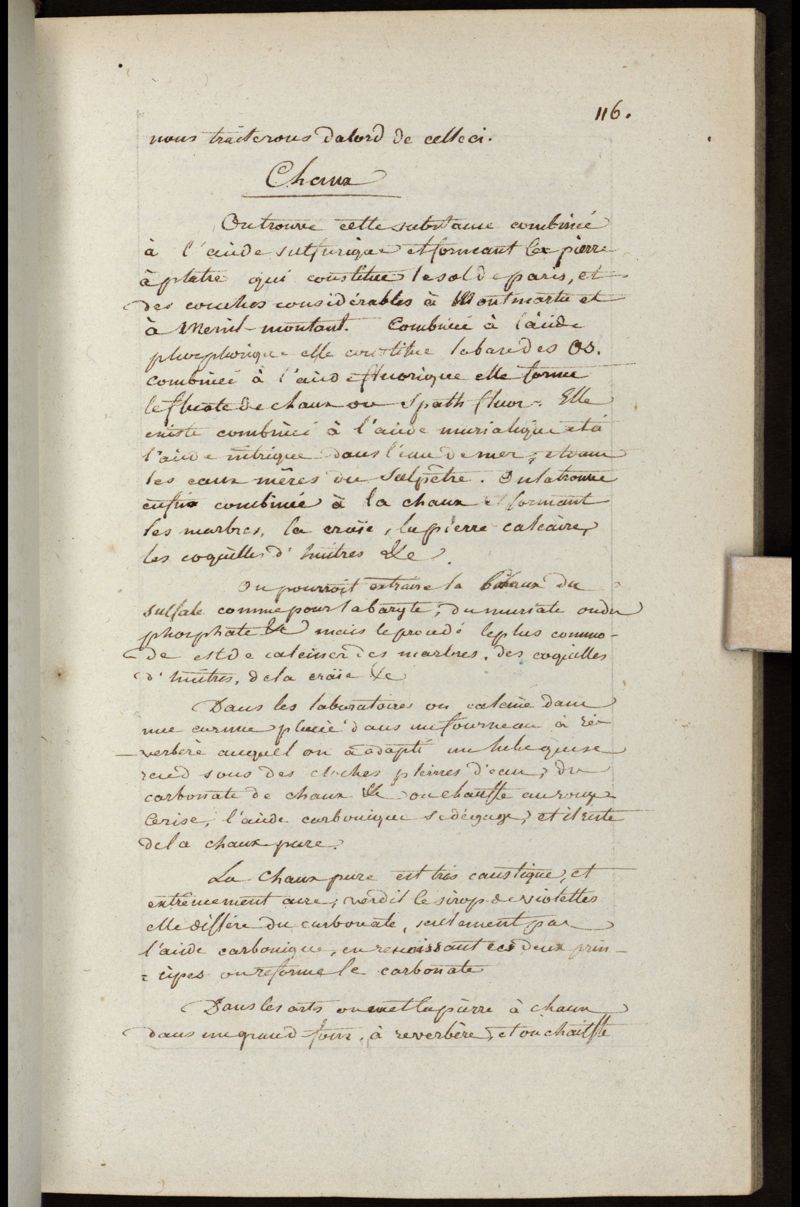 116.
nous traiterons dabord de celleci.
Chaux
On trouve cette substance combinée
à l'acide sulfurique et formant la pierre
à platre qui constitue le sol de paris, et
des couches considérables à Montmartre et
à Menil-montant. Combinée à l'acide
phosphorique elle constitue la base des os.
combinée à l'acide fluorique elle forme
le fluate de chaux ou spath fluor. Elle
existe combinée à l'acide muriatique et à
l'acide nitrique dans l'eau de mer, et dans
les eaux mères du salpêtre. On la trouve
enfin combinée à la chaux et formant
les marbres, la craïe, la pierre calcaire,
les coquilles d'huitres &c.
On pourroit extraire la Chaux du
sulfate comme pour la baryte, du muriate ou du
phosphate &c mais le procédé le plus commo-
de est de calciner des marbres, des coquilles
d'huitres, de la craïe &c
Dans les laboratoires on calcine dans
une cornue placée dans un fourneau à ré-
verbère auquel on a adapté un tube qui se
rend sous des cloches pleines d'eau, du
carbonate de chaux &c on chauffe au rouge
cerise, l'acide carbonique se dégage, et il reste
de la chaux pure.
La Chaux pure est très caustique, et
extrêmement acre, verdit le sirop de violettes
elle diffère du carbonate, seulement par
l'acide carbonique, en reunissant ces deux prin-
cipes on reforme le carbonate
Dans les arts on met la pierre à chaux
dans un grand four, à reverbère, et on chauffe